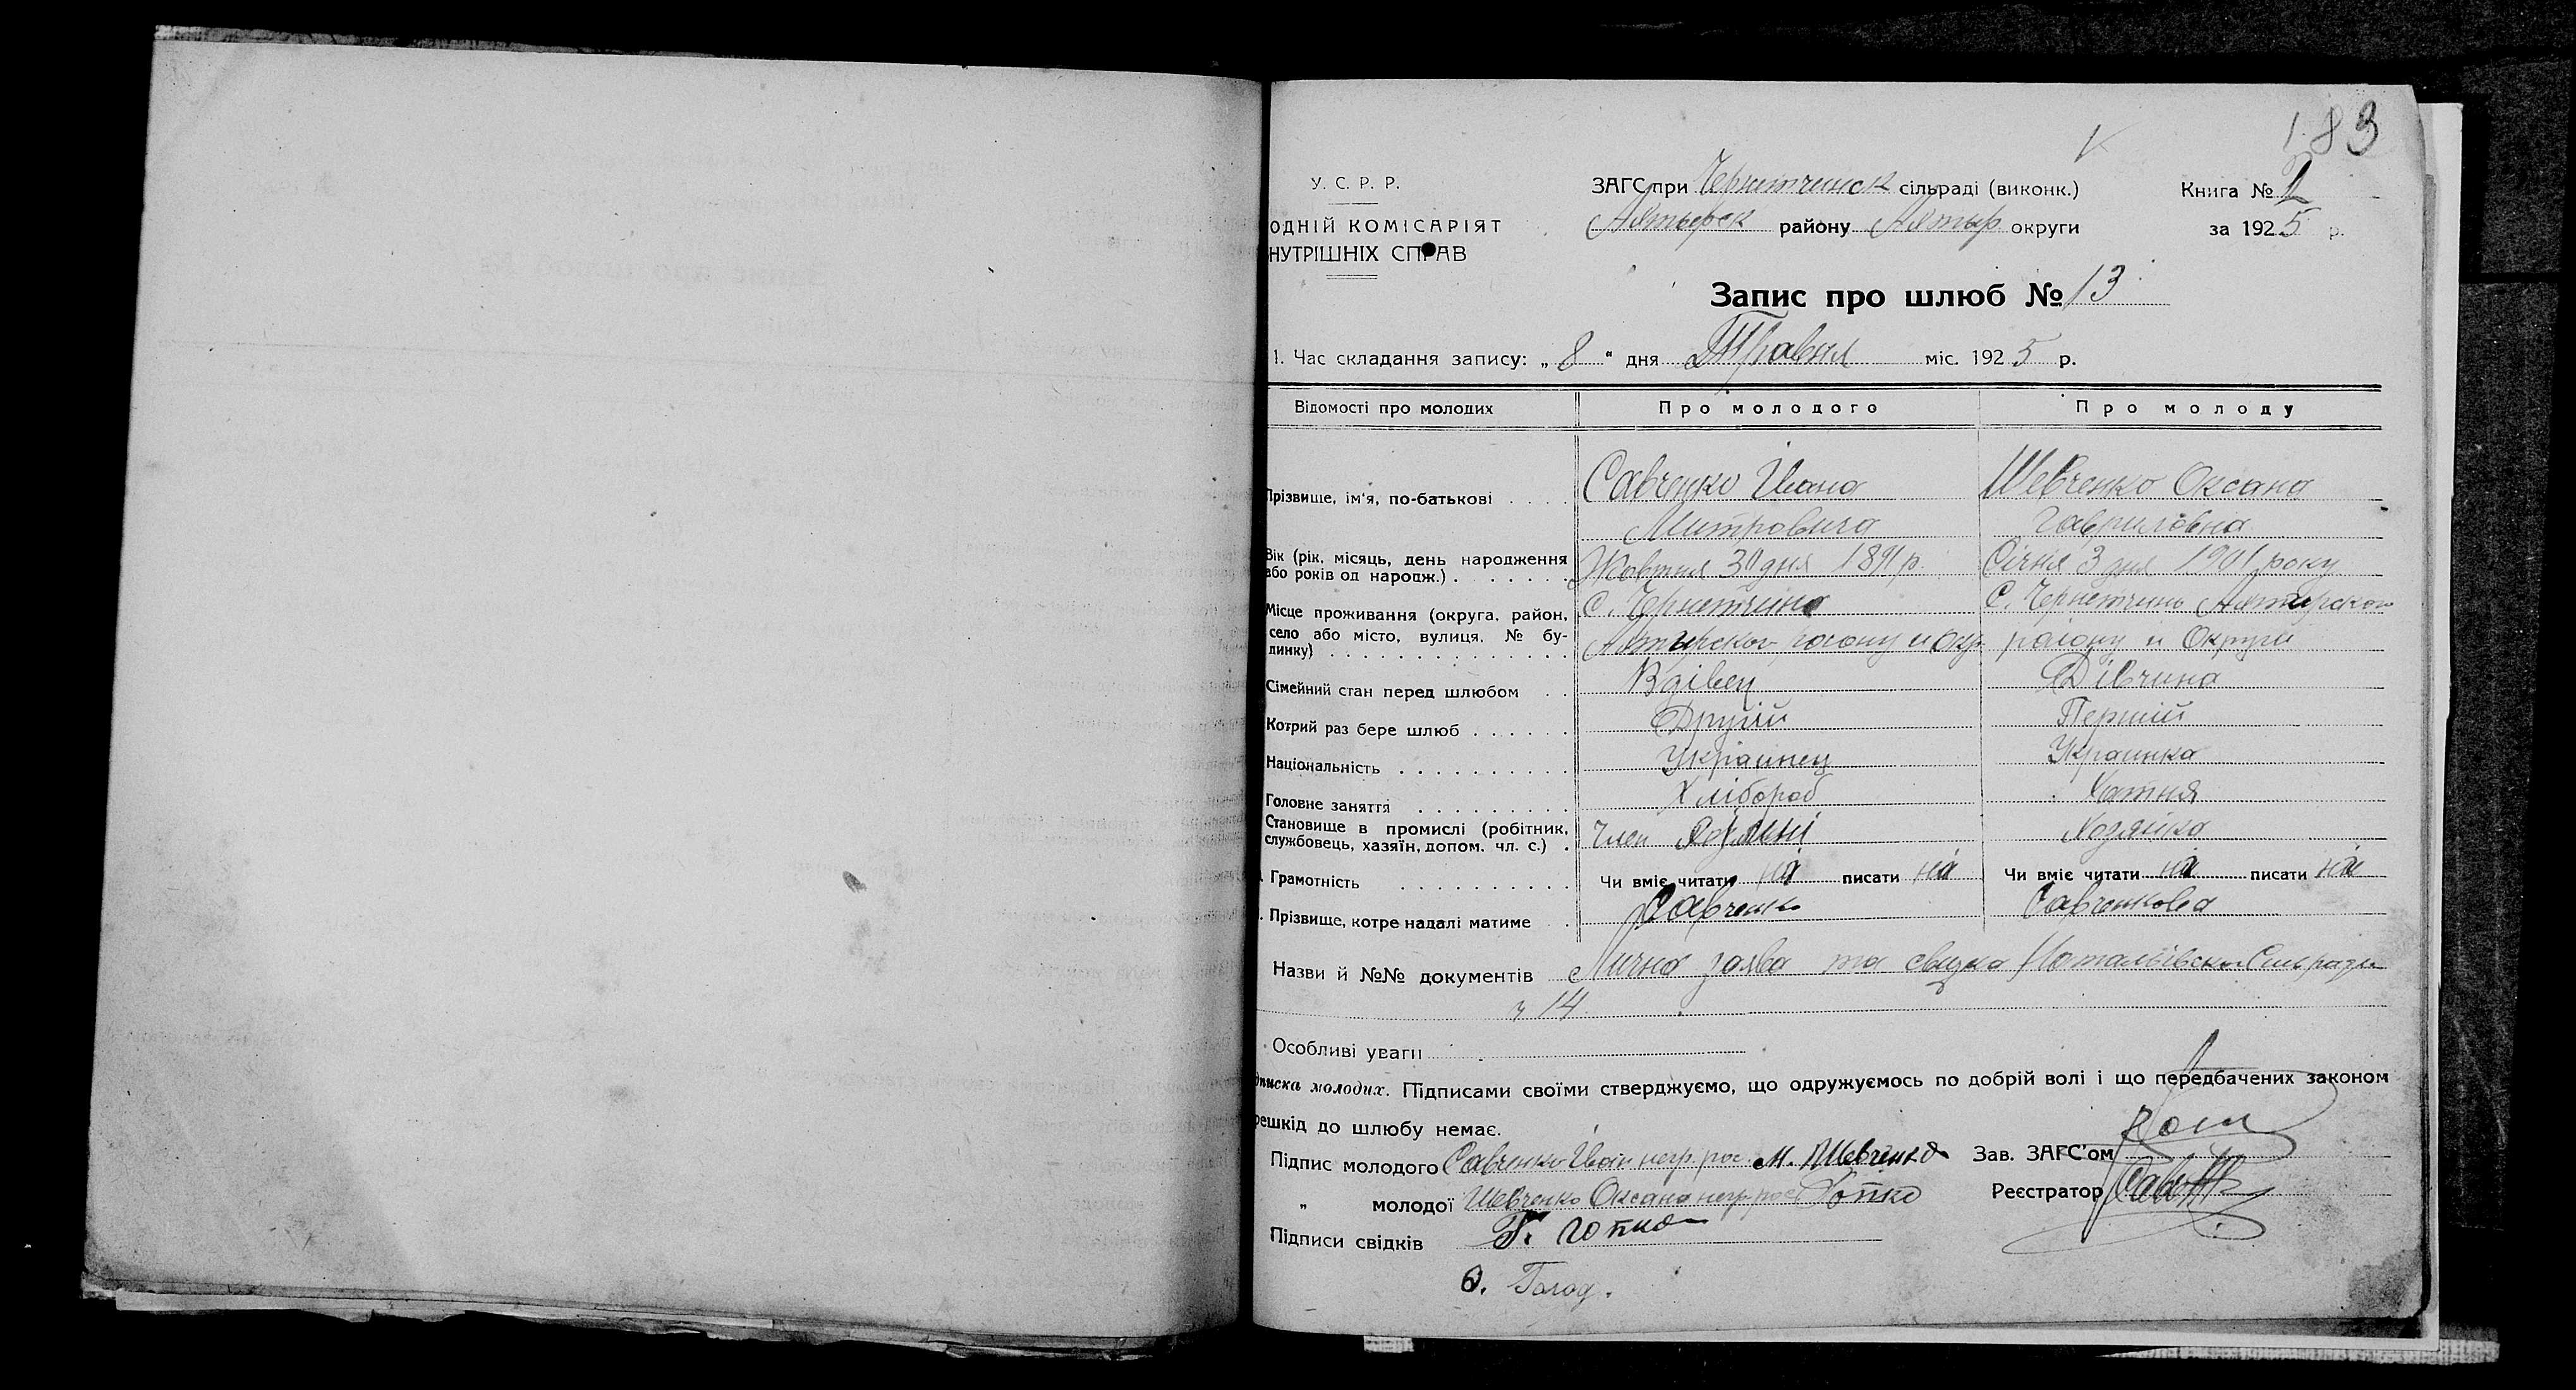 183
У. С. Р. Р.
ОДНІЙ КОМІСАРІЯТ
НУТРІШНІХ СПРАВ
ЗАГС при Чернетчинск сільраді (виконк.)
Книга № 2
району округи
за 1925 р.
Запис про шлюб № 13
1. Час складання запису: „ 8 “ дня Травня міс. 1925 р.
Відомості про молодих Про молодого Про молоду
Прізвище, ім'я, по-батькові . . . . Савченко Ивана Шевченко Оксана
Митровича Гавриловна
Вік (рік, місяць, день народження Жовтня дня 1891 р. Січня 3 дня 1901 року
або років од народж.) . . . . . . .
Місце проживання (округа, район, с. Чернетчина С. Чернетчинь Ахтирского
село або місто, вулиця, № бу- Ахтирского району и Окр. району и Округи
динку) . . . . . . . . . . . . . .
Сімейний стан перед шлюбом . . Вдівец Дівчина
Котрий раз бере шлюб . . . . . . Другий Перший
Національність . . . . . . . . . . Украинец Украинка
Головне заняття . . . . . . . . . Хлібороб Хатня
Становище в промислі (робітник, Член Хозяйка
службовець, хазяїн, допом. чл. с.) .
Грамотність . . . . . . . . . . Чи вміє читати ні писати ні Чи вміє читати ні писати ні
. Прізвище, котре надалі матиме . Савченко Савченкова
Назви й №№ документів Лична заява та Сильради
ч 14.
Особливі уваги
дписка молодих. Підписами своїми стверджуємо, що одружуємось по добрій волі і що передбачених законом
решкід до шлюбу немає.
Підпис молодого Савченко Иван негр. рос. М. Шевченко Зав. ЗАГС'ом
„ молодої Шевченко Оксана негр. рос. Гопко Реєстратор
Підписи свідків Г. Гопко
О. Голод.